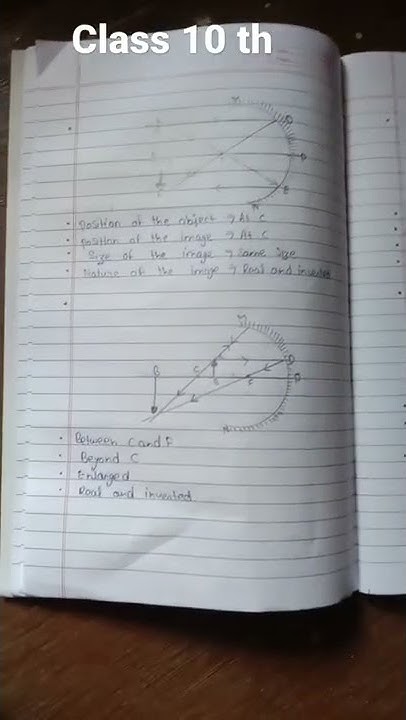 Class 10 th
M
P
E
N
• Position of the object → At C
• Position of the image → At C
• Size of the image → Same size
• Nature of the image → Real and inverted
M
B
C
F
P
N
• Between C and F
• Beyond C
• Enlarged
• Real and inverted